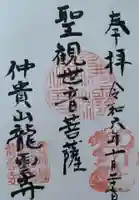 奉拝
令和六年一月二日
聖観世音菩薩
仲貴山龍雲寺